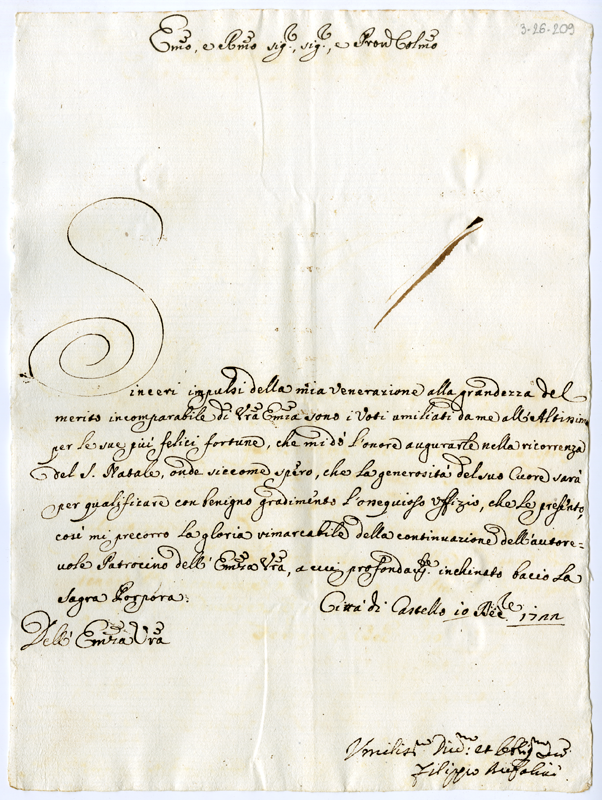 3-26-209
Emo, e Rmo sig.r, sig.r, e Pron Colmo
Sinceri impulsi della mia venerazione alla grandezza del
merito incomparabile di Vra Emza sono i Voti umiliati da me all'Altissimo
per le sue più felici fortune, che mi dò l'onore augurarle nella ricorrenza
del S. Natale, onde siccome spero, che la generosità del suo Cuore sarà
per qualificare con benigno gradimento l'ossequioso Uffizio, che Le presento,
così mi precorro la gloria rimarcabile della continuazione dell'autore-
vole Patrocinio dell'Emza Vra, a cui profondam.te inchinato bacio La
sagra Porpora.
Città di Castello 10 Xbre 1722
Dell'Emza Vra
Umiliss.mo Div.mo et Obblig.mo
Filippo